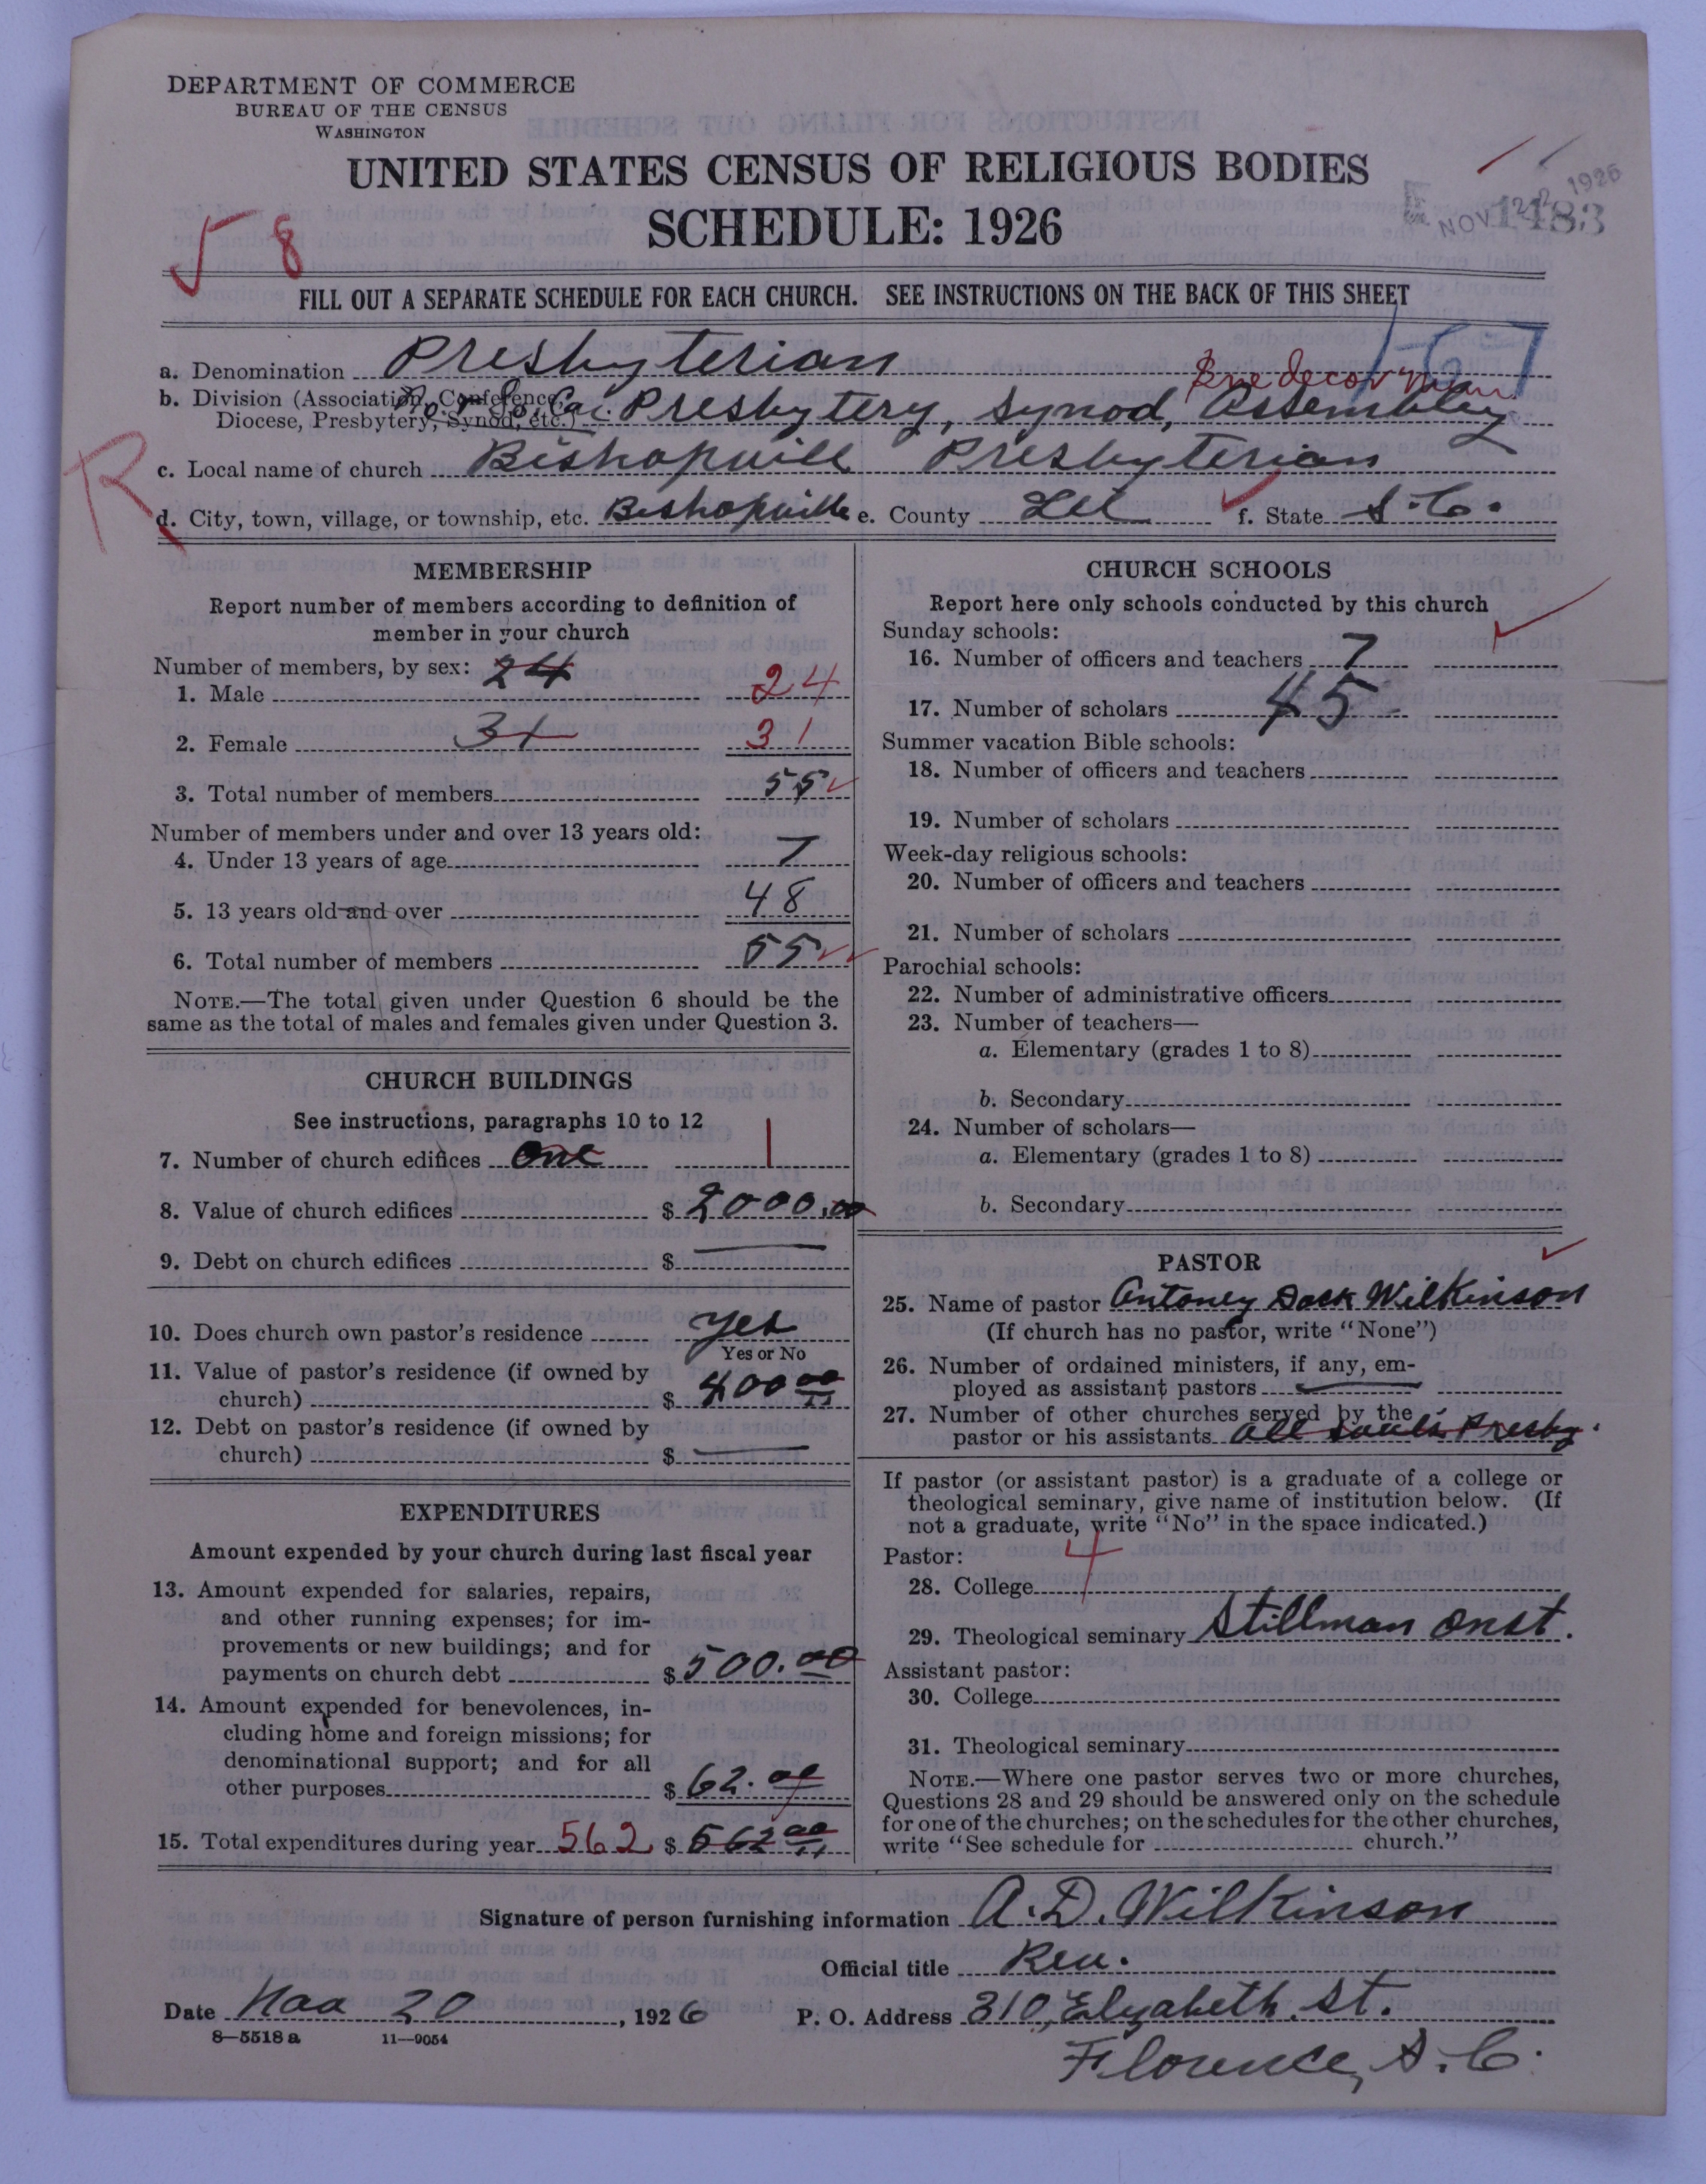 DEPARTMENT OF COMMERCE
BUREAU OF THE CENSUS
WASHINGTON
UNITED STATES CENSUS OF RELIGIOUS BODIES
SCHEDULE: 1926
NOV 22 1926
1183
8
FILL OUT A SEPARATE SCHEDULE FOR EACH CHURCH. SEE INSTRUCTIONS ON THE BACK OF THIS SHEET
a. Denomination Presbyterian
b. Division (Association, Conference, Diocese, Presbytery, Synod, etc.) No. & So. Car. Presbytery, Synod, Assembly
R
c. Local name of church Bishopville Presbyterian
d. City, town, village, or township, etc. Bishopville e. County Lee f. State S.C.
MEMBERSHIP
Report number of members according to definition of
member in your church
Number of members, by sex: 24
1. Male 24
2. Female 31 31
3. Total number of members 55
Number of members under and over 13 years old:
4. Under 13 years of age 7
5. 13 years old and over 48
6. Total number of members 55
NOTE.—The total given under Question 6 should be the
same as the total of males and females given under Question 3.
CHURCH BUILDINGS
See instructions, paragraphs 10 to 12
7. Number of church edifices one 1
8. Value of church edifices $ 2000.00
9. Debt on church edifices $ —
10. Does church own pastor's residence Yes
Yes or No
11. Value of pastor's residence (if owned by
church) $ 400 00
12. Debt on pastor's residence (if owned by
church) $ —
EXPENDITURES
Amount expended by your church during last fiscal year
13. Amount expended for salaries, repairs,
and other running expenses; for im-
provements or new buildings; and for
payments on church debt $ 500.00
14. Amount expended for benevolences, in-
cluding home and foreign missions; for
denominational support; and for all
other purposes $ 62.00
15. Total expenditures during year 562 $ 562 00
CHURCH SCHOOLS
Report here only schools conducted by this church
Sunday schools:
16. Number of officers and teachers 7
17. Number of scholars 45
Summer vacation Bible schools:
18. Number of officers and teachers
19. Number of scholars
Week-day religious schools:
20. Number of officers and teachers
21. Number of scholars
Parochial schools:
22. Number of administrative officers
23. Number of teachers—
a. Elementary (grades 1 to 8)
b. Secondary
24. Number of scholars—
a. Elementary (grades 1 to 8)
b. Secondary
PASTOR
25. Name of pastor Antoney Dack Wilkinson
(If church has no pastor, write "None")
26. Number of ordained ministers, if any, em-
ployed as assistant pastors —
27. Number of other churches served by the
pastor or his assistants All Souls Presby.
If pastor (or assistant pastor) is a graduate of a college or
theological seminary, give name of institution below. (If
not a graduate, write "No" in the space indicated.)
Pastor: 4
28. College
29. Theological seminary Stillman Inst.
Assistant pastor:
30. College
31. Theological seminary
NOTE.—Where one pastor serves two or more churches,
Questions 28 and 29 should be answered only on the schedule
for one of the churches; on the schedules for the other churches,
write "See schedule for church."
Signature of person furnishing information A. D. Wilkinson
Official title Rev.
Date 20, 1926 P. O. Address 310, Elyzabeth St.
8—5518 a 11—9054
Florence, S.C.